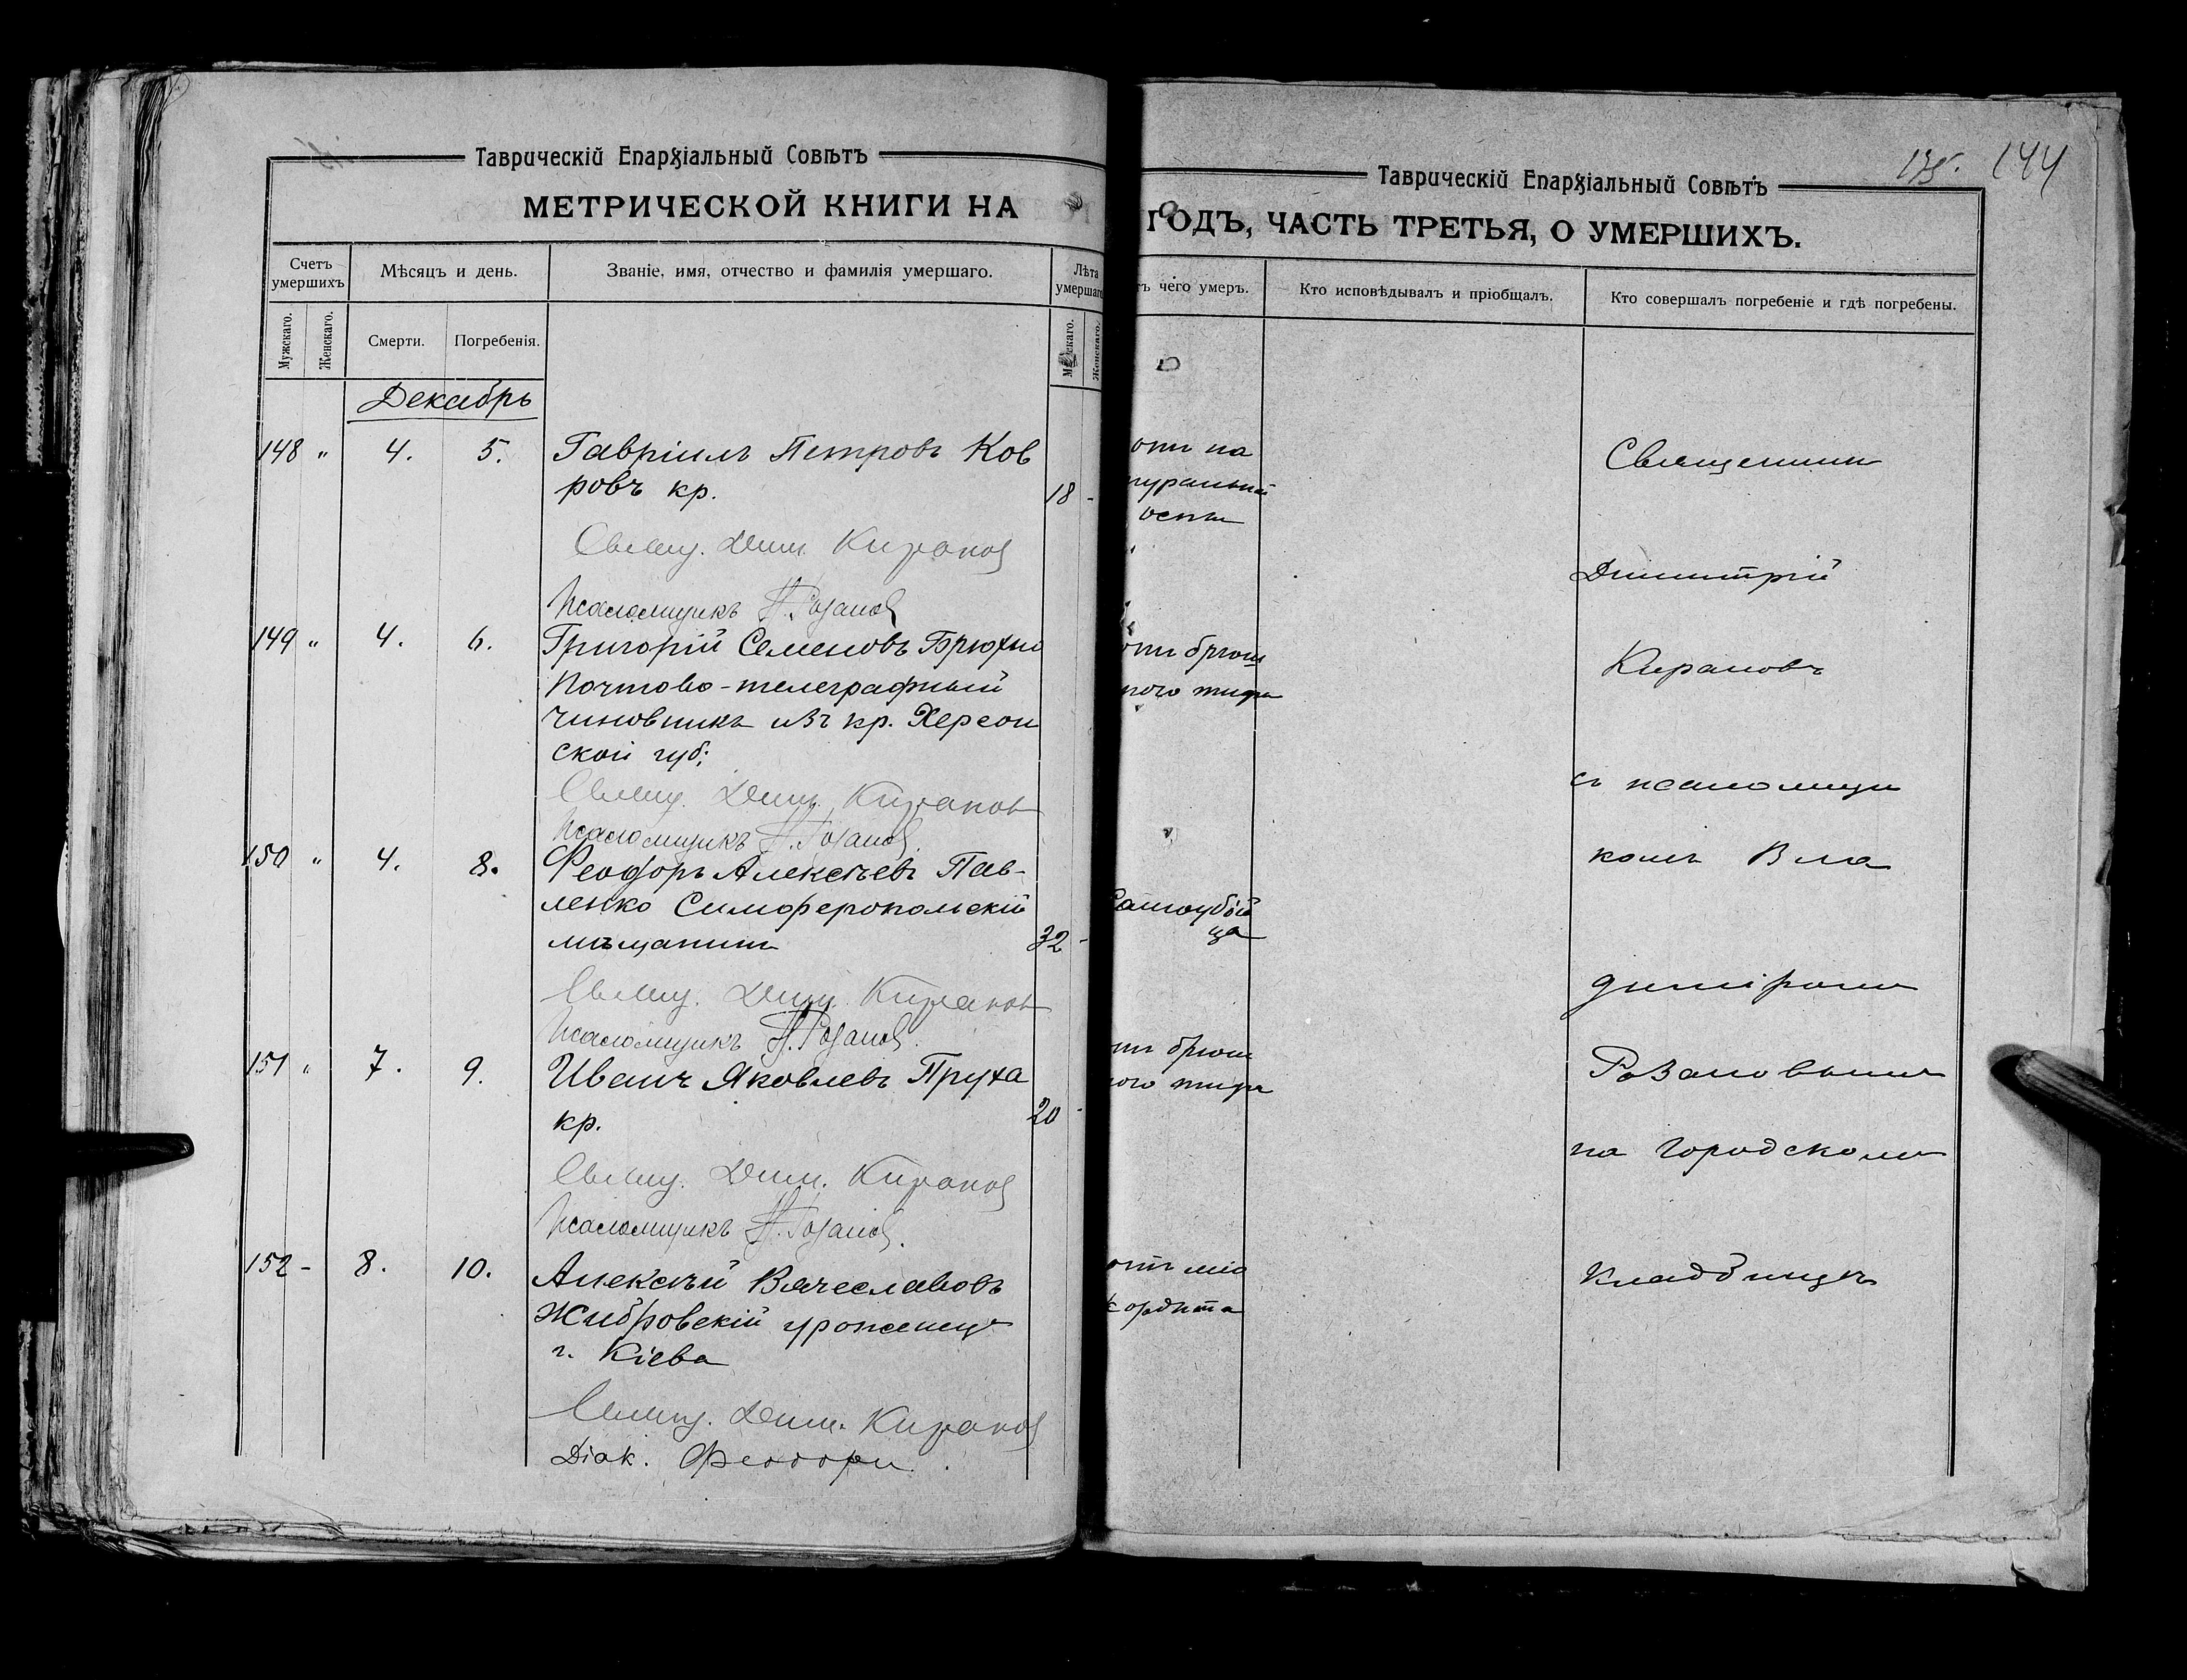 Таврическій Епархіальный Совѣтъ
МЕТРИЧЕСКОЙ КНИГИ НА
Счетъ умершихъ
Мѣсяцъ и день.
Званіе, имя, отчество и фамилія умершаго.
Лѣта умершаго
Мужскаго.
Женскаго.
Смерти.
Погребенія.
Мужскаго.
Женскаго.
Декабрь
148 " 4. 5. Гавріилъ Петровъ Ков
ровъ кр. 18 -
Свящ. Дим. Киранов
Псаломщикъ Н. Розанов
149 " 4. 6. Григорій Семеновъ Брюхно
Почтово-телеграфный
чиновникъ изъ кр. Херсон
ской губ.
Свящ. Дим. Киранов
Псаломщикъ Н. Розанов.
150 " 4. 8. Феодоръ Алексѣевъ Пав-
ленко Симферопольскій
мѣщанинъ 32 -
Свящ. Дим. Киранов
Псаломщикъ Н. Розанов.
151 " 7. 9. Иванъ Яковлевъ Пруха
кр. 20 -
Свящ. Дим. Киранов
Псаломщикъ Н. Розанов.
152 - 8. 10. Алексѣй Вячеславовъ
Жибровскій уроженецъ
г. Кіева
Свящ. Дим. Киранов
Діак. Феодори
135. 144
Таврическій Епархіальный Совѣтъ
ГОДЪ, ЧАСТЬ ТРЕТЬЯ, О УМЕРШИХЪ.
тъ чего умеръ.
Кто исповѣдывалъ и пріобщалъ.
Кто совершалъ погребеніе и гдѣ погребены.
отъ на
туральной
оспы
отъ брюш
ного тифа
Самоубій
ца
отъ брюш
ного тифа
отъ міо
кардита
Священник
Димитрій
Кирановъ
съ псаломщи
комъ Вла
диміромъ
Розановымъ
на городскомъ
кладбищѣ